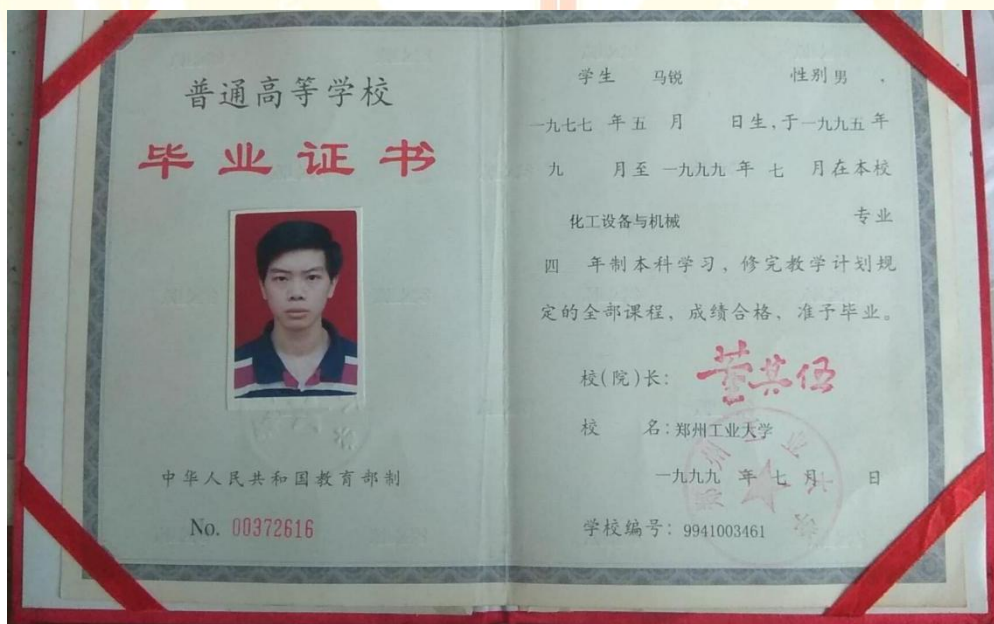 普通高等学校
毕业证书
中华人民共和国教育部制
No. 00372616
学生 马锐 性别 男 ,
一九七七 年 五 月 日生,于一九九五 年
九 月至 一九九九 年 七 月在本校
化工设备与机械 专业
四 年制本科学习，修完教学计划规
定的全部课程，成绩合格、准予毕业。
校(院)长: 董其伍
校 名: 郑州工业大学
一九九九 年 七 月 日
学校编号: 9941003461